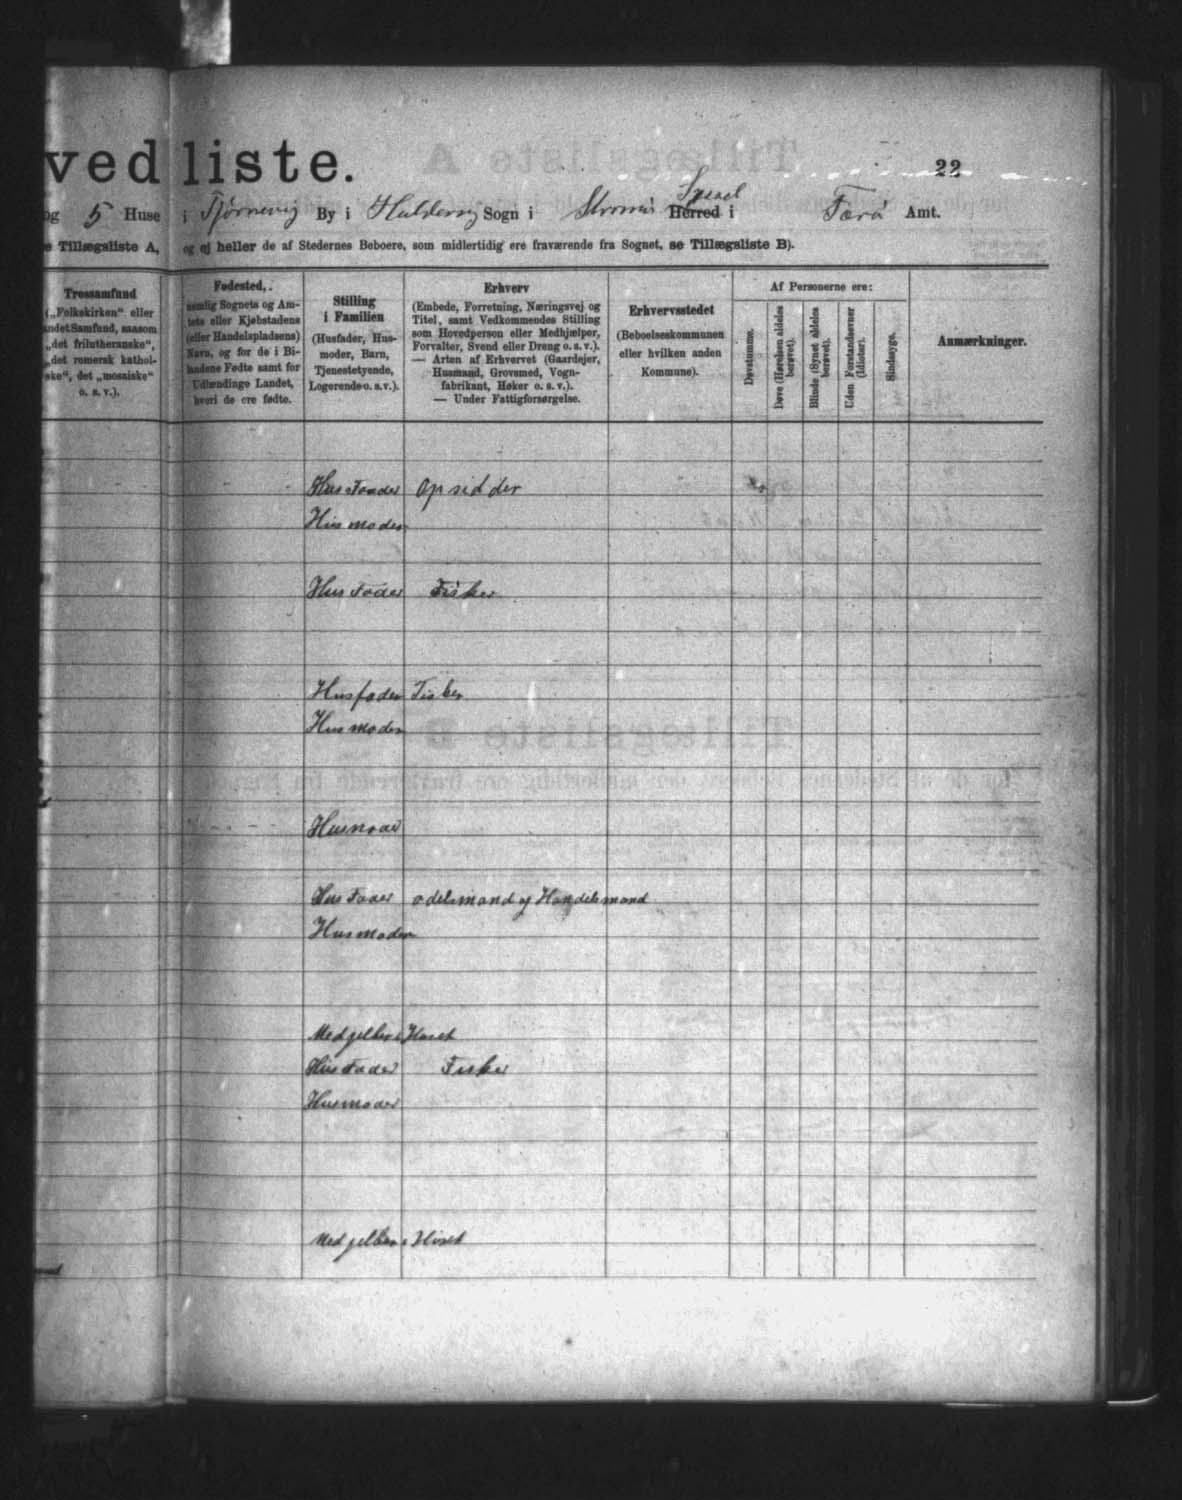 ved liste.
22
og 5 Huse i Tjørnevig By i Haldervig Sogn i Strømø Herred i Syssel Færø Amt.
e Tillægsliste A, og ej heller de af Stedernes Beboere, som midlertidig ere fraværende fra Sognet, se Tillægsliste B).
Trossamfund
(„Folkekirken" eller
andet Samfund, saasom
„det frilutheranske",
„det romersk kathol-
ske", det „mosaiske"
o. s. v.).
Fødested,
nemlig Sognets og Am-
tets eller Kjøbstadens
(eller Handelspladsens)
Navn, og for de i Bi-
landene Fødte samt for
Udlændinge Landet,
hvori de ere fødte.
Stilling
i Familien
(Husfader, Hus-
moder, Barn,
Tjenestetyende,
Logerende o. s. v.).
Erhverv
(Embede, Forretning, Næringsvej og
Titel, samt Vedkommendes Stilling
som Hovedperson eller Medhjælper,
Forvalter, Svend eller Dreng o. s. v.).
— Arten af Erhvervet (Gaardejer,
Husmand, Grovsmed, Vogn-
fabrikant, Høker o. s. v.).
— Under Fattigforsørgelse.
Erhvervsstedet
(Beboelseskommunen
eller hvilken anden
Kommune).
Af Personerne ere:
Døvstumme.
Døve (Hørelsen aldeles
berøvet).
Blinde (Synet aldeles
berøvet).
Uden Forstandsevner
(Idioter).
Sindssyge.
Anmærkninger.
Hus Fader Opsidder
Hus moder
Hus Fader Fisker
Husfader Fisker
Hus moder
Husmoder
Hus Fader odelsmand og Handelsmand
Husmoder
Medhjelber i Huset
Hus Fader Fisker
Husmoder
Medhjelber i Huset